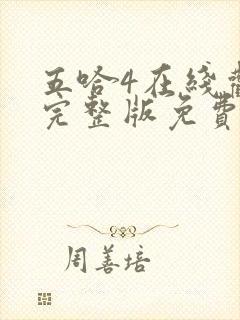 五哈4在线
完整版免费
周善培